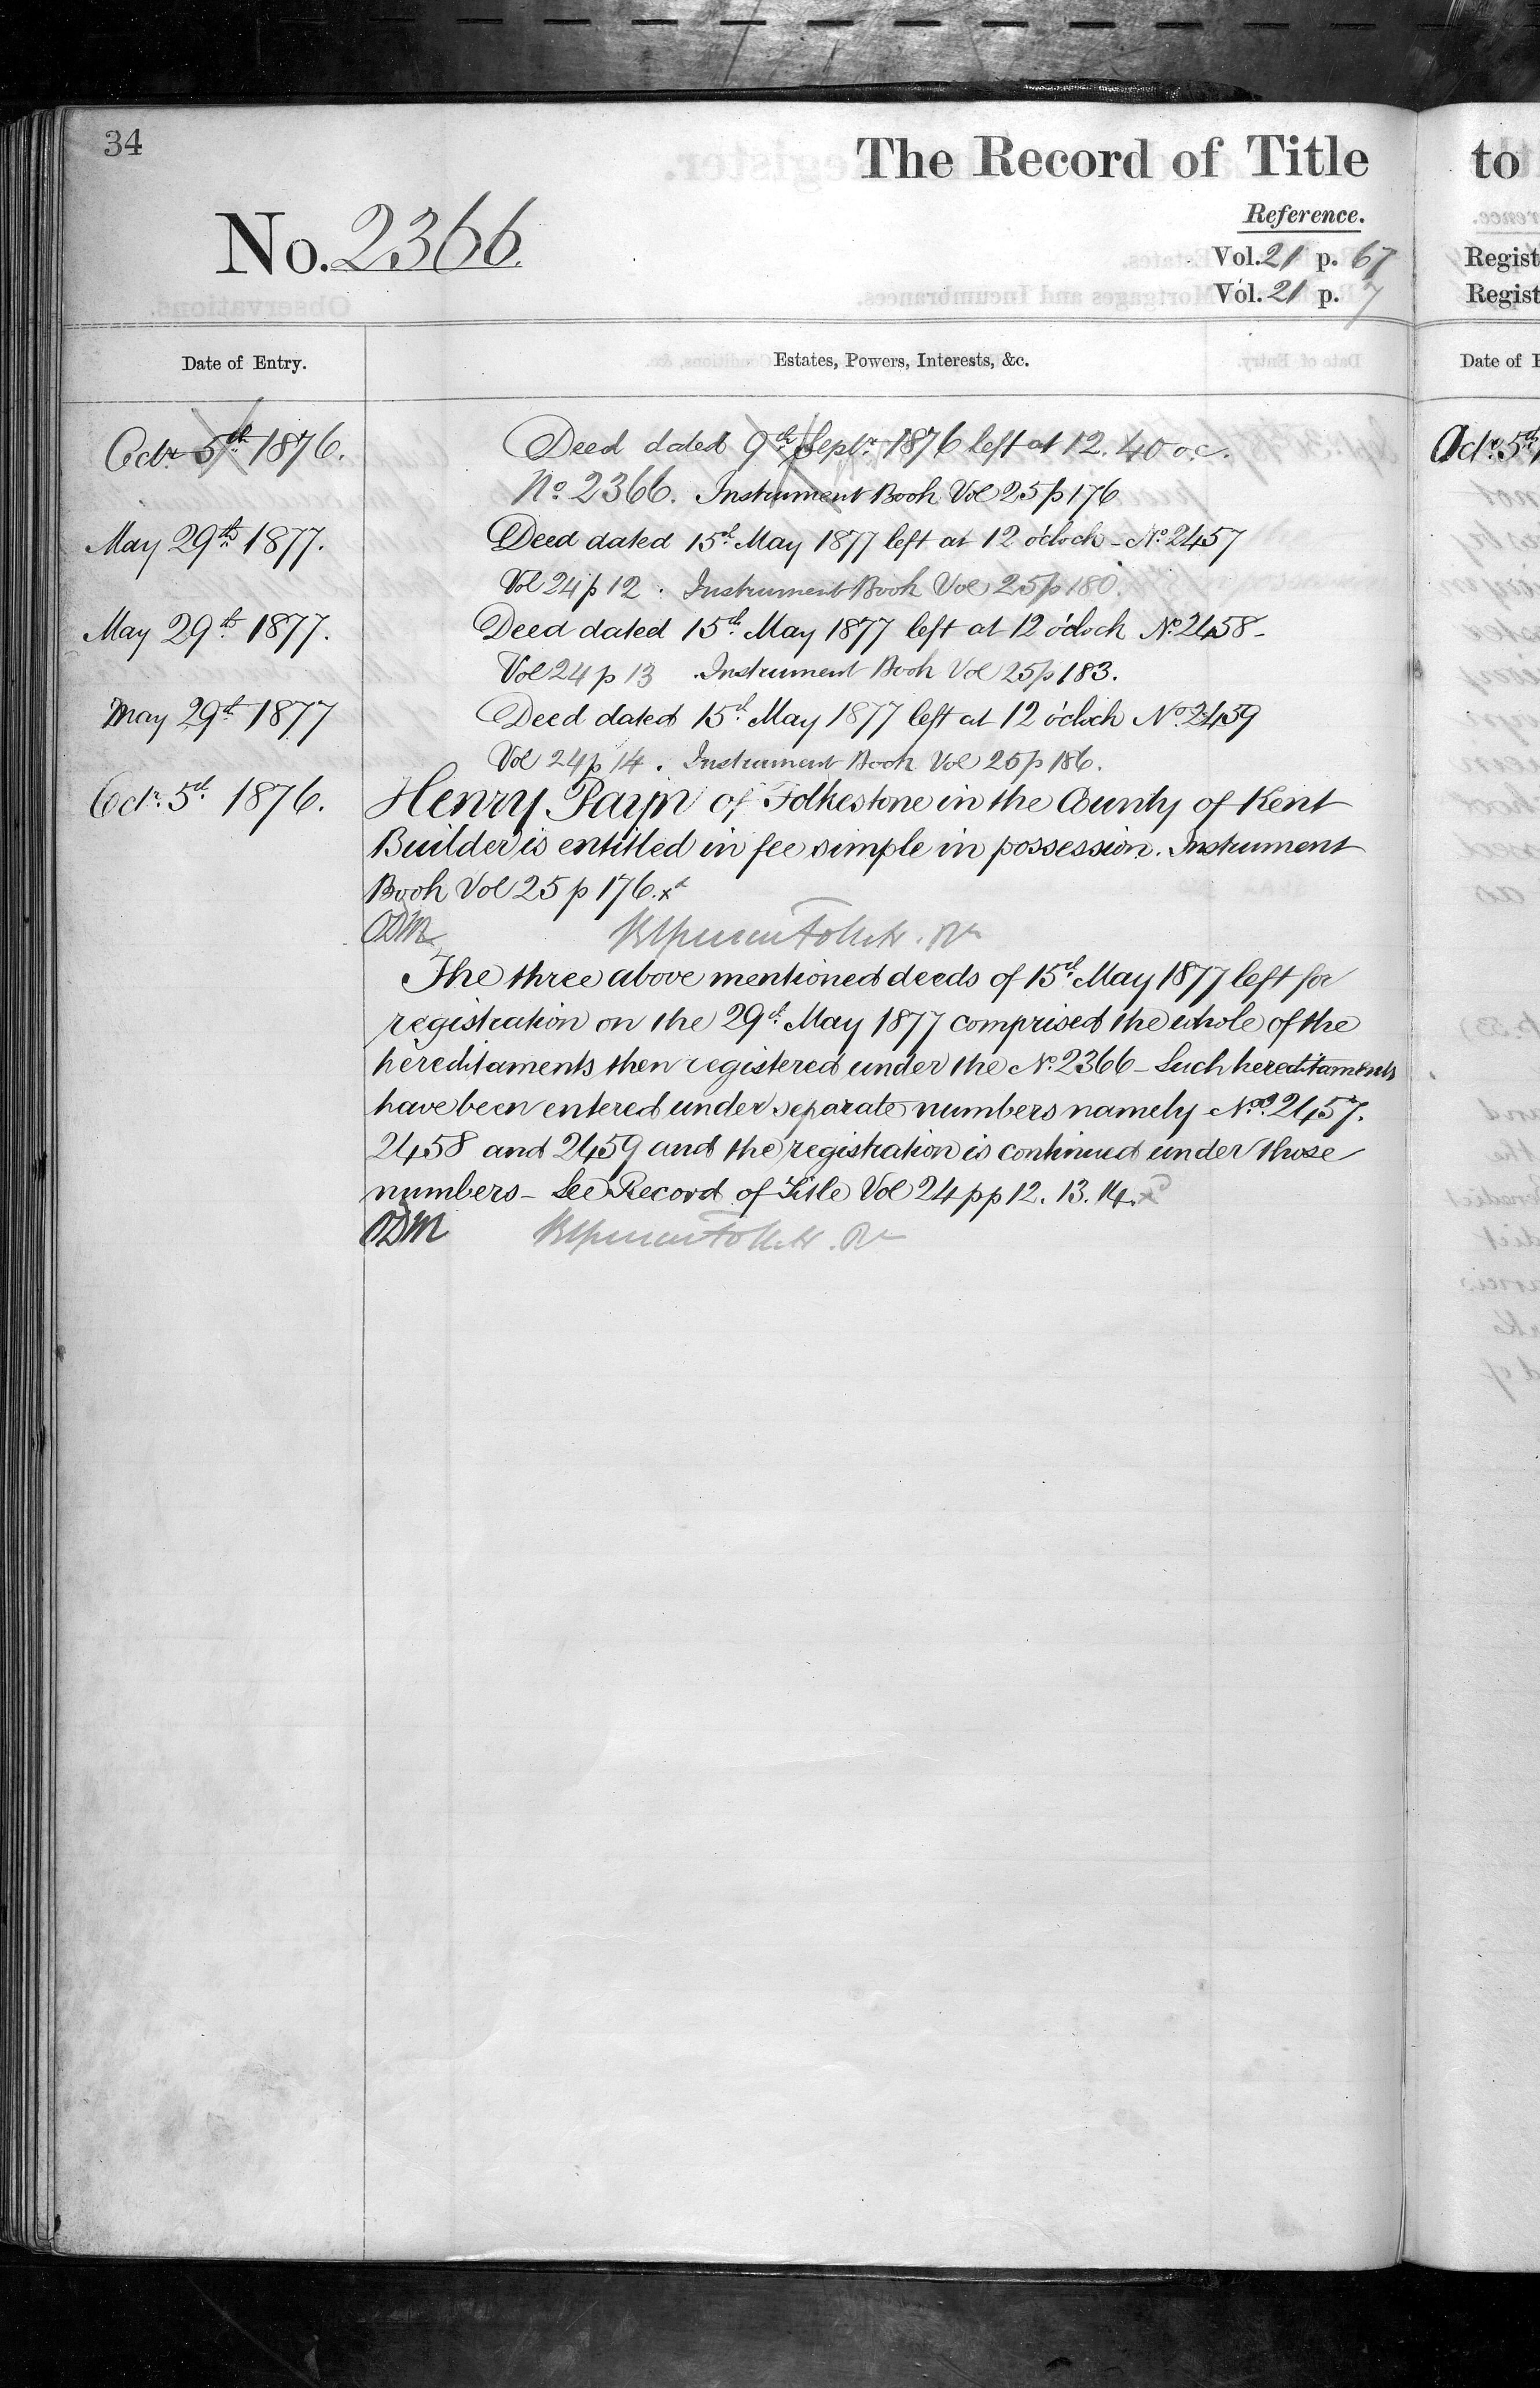 34
The Record of Title
to
Reference.
No. 2366.
Vol. 21 p. 67
Regist
Vol. 21 p. 7
Regist
Date of Entry.
Estates, Powers, Interests, &c.
Date of
Octr. 5th 1876.
Deed dated 9th Septr. 1876 left at 12.40 o.c.
Octr. 5th
No. 2366. Instrument Book Vol 25 p 176
May 29th 1877.
Deed dated 15th May 1877 left at 12 o'clock - No. 2457
Vol 24 p 12. Instrument Book Vol 25 p 180.
May 29th 1877.
Deed dated 15th May 1877 left at 12 o'clock No. 2458 -
Vol 24 p 13 . Instrument Book Vol 25 p 183.
May 29th 1877
Deed dated 15th May 1877 left at 12 o'clock No. 2459
Vol 24 p 14. Instrument Book Vol 25 p 186.
Octr. 5th 1876.
Henry Payn of Folkestone in the County of Kent
Builder is entitled in fee simple in possession. Instrument
Book Vol 25 p 176.
ODM
The three above mentioned deeds of 15th May 1877 left for
registration on the 29th May 1877 comprised the whole of the
hereditaments then registered under the No. 2366 - Such hereditaments
have been entered under separate numbers namely Nos. 2457.
2458 and 2459 and the registration is continued under those
numbers - See Record of Title Vol 24 pp 12. 13. 14.
ODM